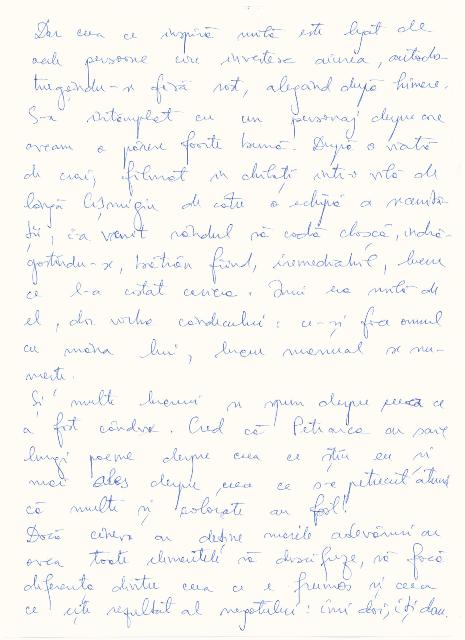 Dar ceea ce inspiră milă este legat de
acele persoane care investesc aiurea, autodis-
trugându-se fără rost, alergând după himere.
S-a întâmplat cu un personaj despre care
aveam o părere foarte bună. După o viață
de crai, filmat în chiloți într-o vilă de
lângă Cișmigiu de către o echipă a securită-
ții, i-a venit rândul să cadă cloșcă, îndră-
gostindu-se, bătrân fiind, iremediabil, lucru
ce l-a costat cariera. Îmi era milă de
el, dar vorba cântecului: ce-și face omul
cu mâna lui, lucru manual se nu-
mește.
Și multe lucruri se spun despre ceea ce
a fost cândva. Cred că Petrarca ar scrie
lungi poeme despre ceea ce știu eu și
mai ales despre ceea ce s-a petrecut atunci
că multe și colorate au fost!
Dacă cineva ar deține marile adevăruri ar
avea toate elementele să descifreze, să facă
diferența dintre ceea ce e frumos și ceea
ce este rezultat al negoțului: îmi dai, îți dau.